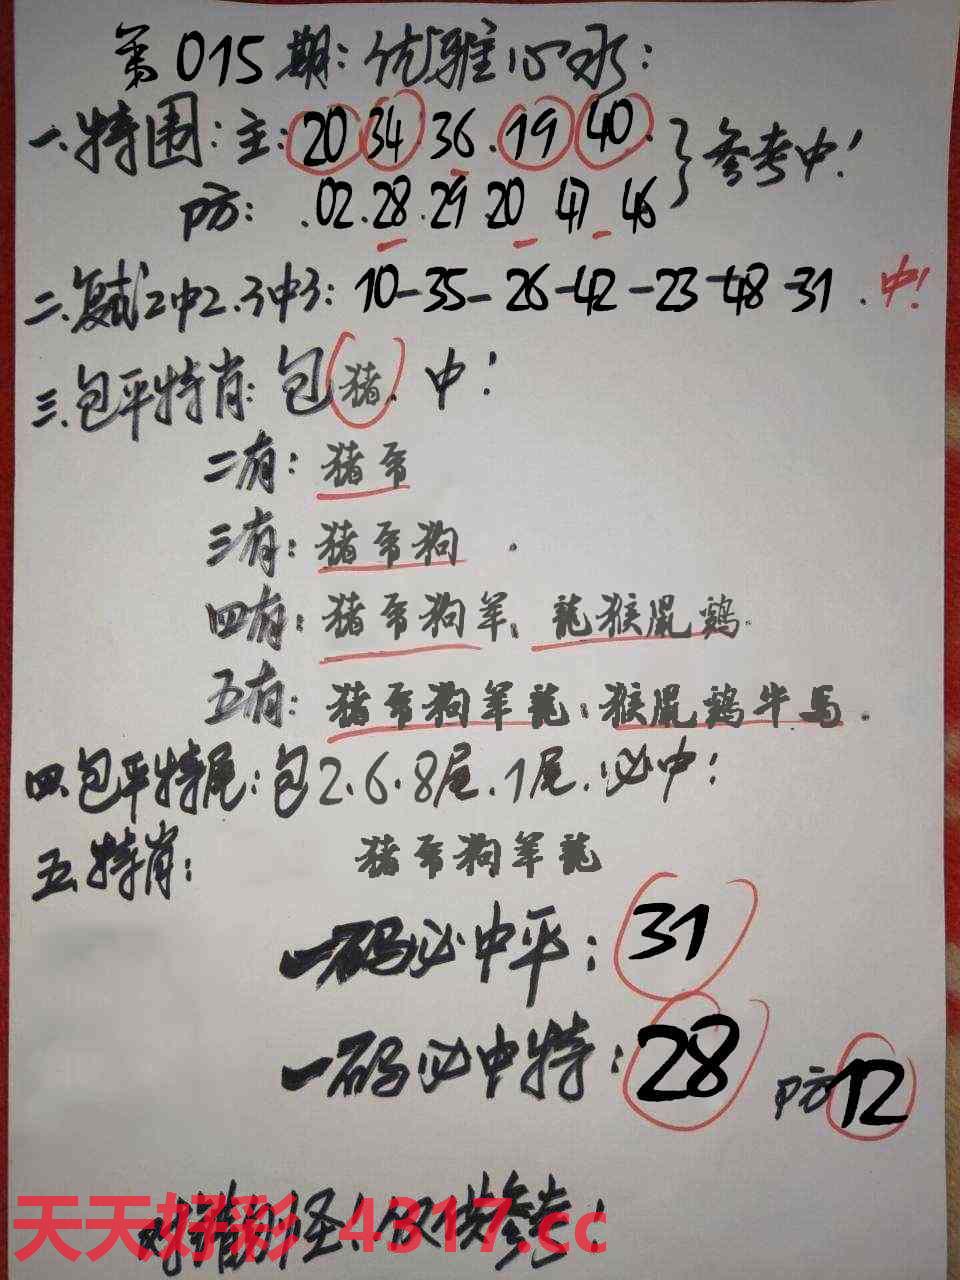 第015期:优雅心水:
一.特围:主:20 34.36.19 40. }参考中!
防:.02.28.29 20 47 46
二.复试2中2.3中3:10-35-26-42-23-48-31.中!
三.包平特肖:包猪.中!
二有:猪
三有:猪 狗.
四有:猪 狗羊、龍猴鼠鷄.
五有:猪 狗羊龍:猴鼠鷄牛馬.
四.包平特尾:包2.6.8尾.1尾.必中!
五.特肖: 猪 狗羊龍
一码必中平:31
一码必中特:28 防12
对错勿怪!仅供参考!
天天好彩 4317.cc